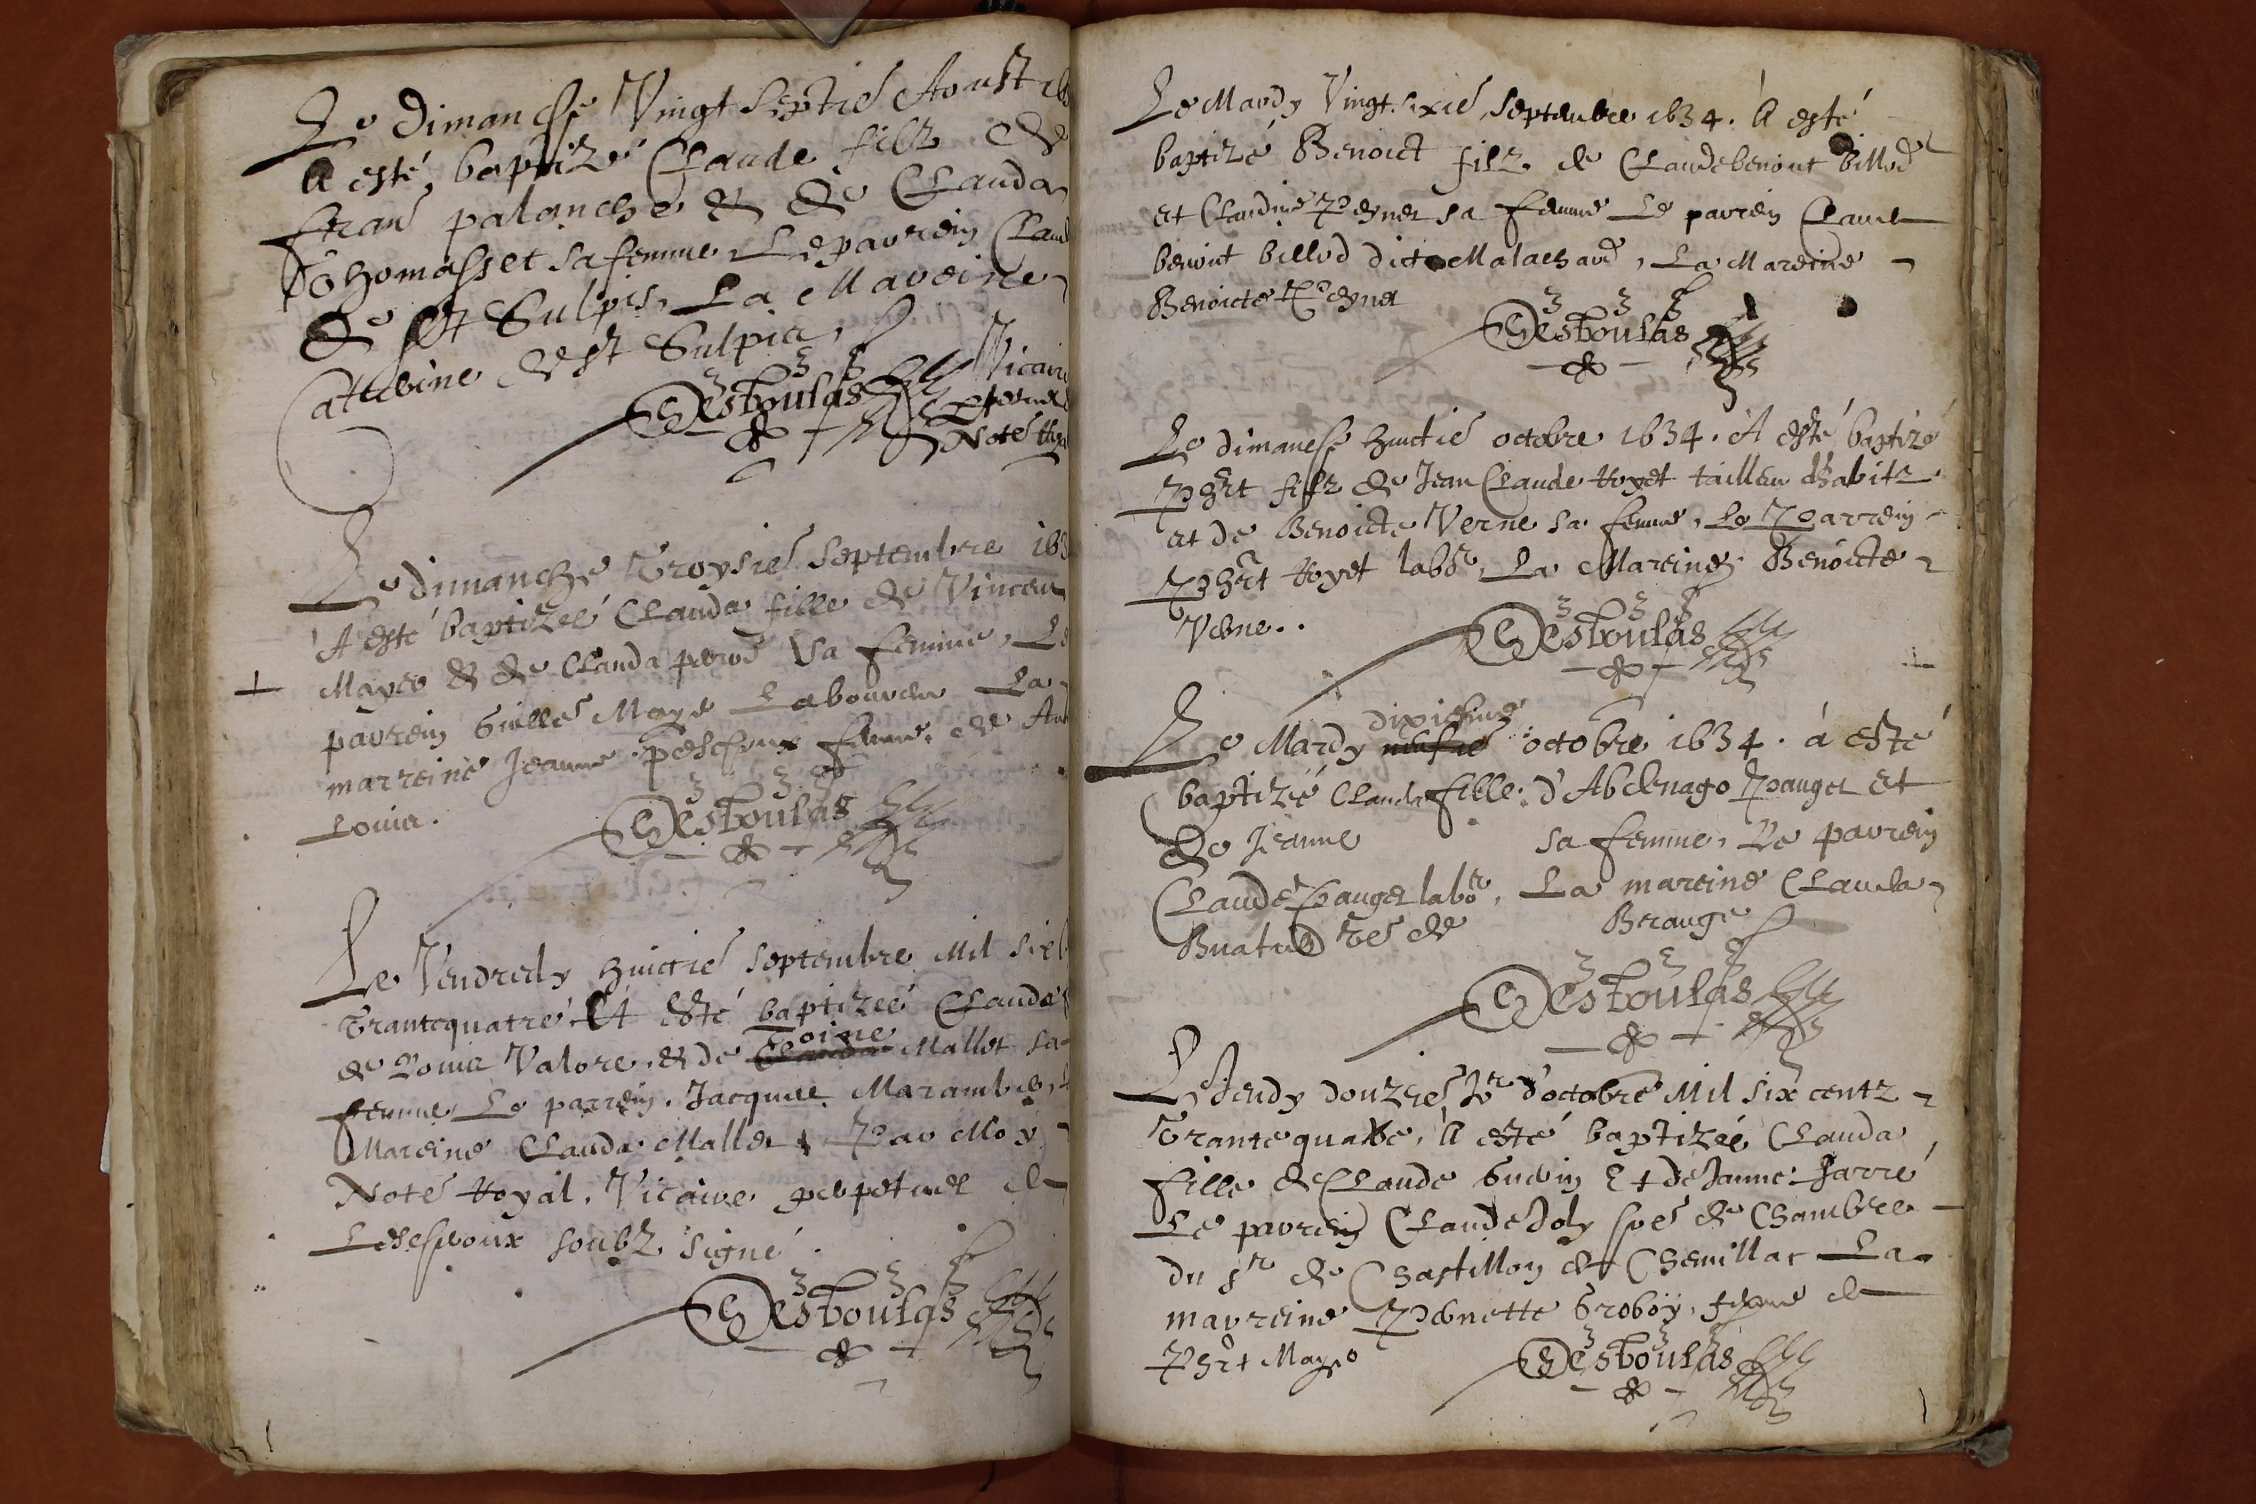 Le dimanche Vingt septie Aoust 16
A esté baptizé Claude filz de
fran palanche & de Clauda
Thomasset sa femme Le parrein Claud
de st Sulpis, La Mareine
Catherine de st Sulpis,
Desboulas Vicaire
perpetuel
Note Roya
Le dimanche Troysie septembre 163
A esté baptizeé Clauda fille de Vincent
Mayeo & de Clauda perod sa femme, Le
parrein Gille Maye Laboureur La
marreine Jeanne pescheux femme de Ant
Louis.
Desboulas
Le Vendredy huictie septembre Mil six
Trantequatre A esté baptizeé Clauda
de Louis Valore & de Toine Mallet sa
femme Le parrein Jacques Marambe,
Mareine Clauda Mallet Par Moy
Note Royal, Vicaire perpetuel de
Ledespoux soubz signé.
Desboulas
Le Mardy Vingt sixie septembre 1634. A esté
baptizé Benoict filz de Claudebenoit billod
et Claudine Peynet sa femme Le parrein Claude
benoit billod dict Malachard, La Mareine
Benoicte Peynet
Desboulas
Le dimanche huictie octobre 1634. A esté baptizé
Phert filz de Jean Claude Royet tailleur dhabitz
et de Benoicte Verne sa femme, Le Parrein
Phert Royet labr, La Mareine Benoicte
Verne..
Desboulas
dixiesme
Le Mardy neufie octobre 1634. á esté
baptizé Clauda fille d'Abdenago Pauget et
De Jeanne sa femme, Le parrein
Claude Pauget labor, La mareine Clauda
Buatie de Berauge
Desboulas
Le Jeudy douzie Jr d'octobre Mil six centz
Trantequatre, A esté baptizeé Clauda
fille de Claude Guerin Et de Janne Jarre
Le parrein Claude Joly de Chambre
du sr de Chastillon et Chemillat La
marreine Pernette Groboz, femme de
Phert Mayeo
Desboulas